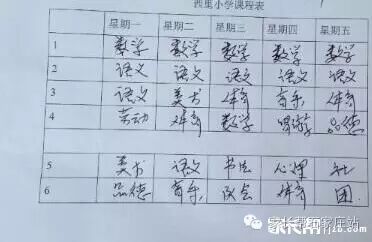 西里小学课程表
星期一 星期二 星期三 星期四 星期五
1 数学 数学 数学 数学 数学
2 语文 语文 语文 语文 语文
3 语文 美术 体育 音乐 体育
4 劳动 体育 数学 品德
5 美术 语文 书法 心理 社
6 品德 音乐 队会 体育 团
家长帮石家庄站
家长帮 jzb.com